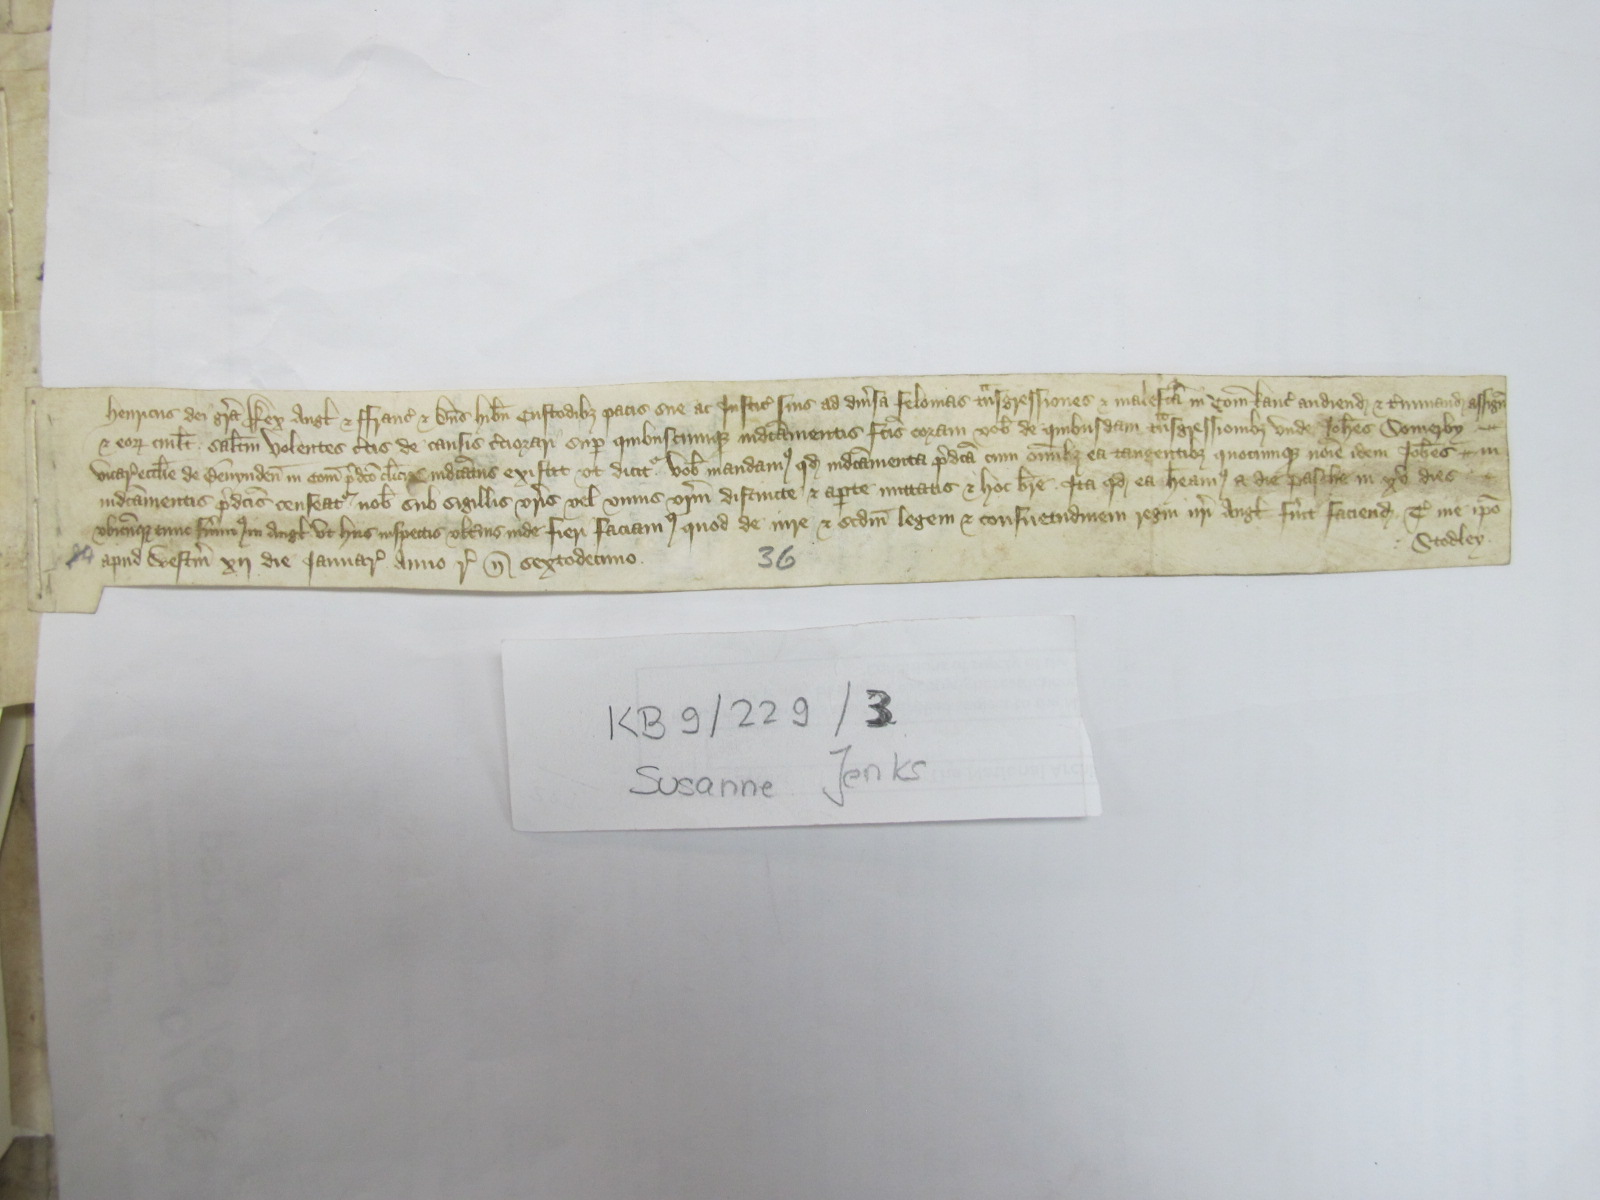 Henricus dei gra Rex Angl & ffranc & Dns Hibn Custodibz pacis sue ac Justic suis ad diusa felonias tnsgressiones & malefca in Com Kanc audiend & tminand assign
& eor cuilt saltm Volentes ctis de causis ctiorari sup quibuscumqz indcamentis fcis coram vob de quibusdam tnsgressionibz unde Johes Somerby
vicar ecclie de in Com pdco clicus indcatus existit ut dicit vob mandam qd indcamenta pdca cum omibz ea tangentibz quocumqz noie idem Johes in
indcamentis pdcis censeat nob sub sigillis vris vel unius vrm distincte & apte mittatis & hoc bre Ita qd ea heam a die pasche in xv dies
ubicumqz tunc fuim in Angl Ut hiis inspectis ultius inde fieri faciam quod de iure & scdm legem & consuetudinem regni nri Angl fuit faciend T me ipo
apud Westm xij die Januar Anno r n sextodecimo
Stodley
36
KB 9/229/3
Susanne Jenks